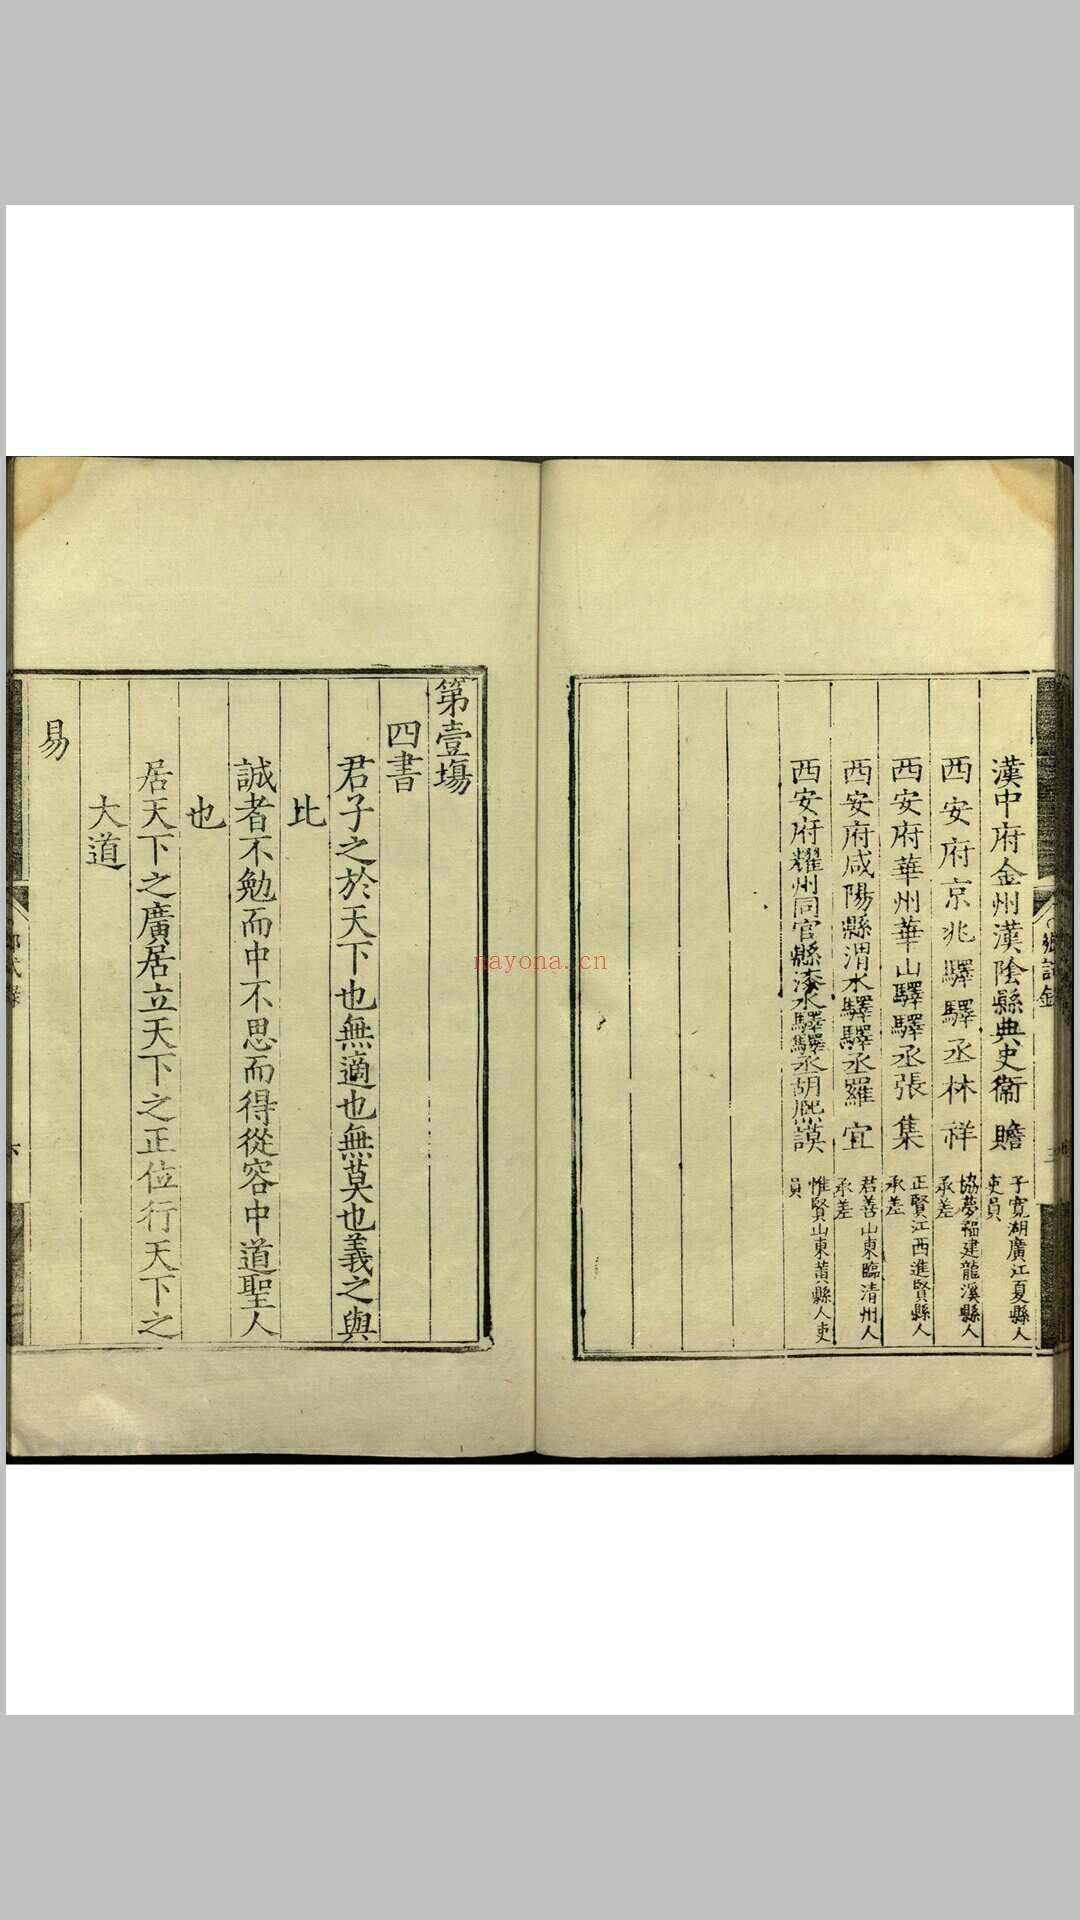 漢中府金州漢陰縣典史衞贍 子寬湖廣江夏縣人吏員
西安府京兆驛驛丞林祥 協夢福建龍溪縣人承差
西安府華州華山驛驛丞張集 正賢江西進賢縣人承差
西安府咸陽縣渭水驛驛丞羅宜 君善山東臨清州人承差
西安府耀州同官縣漆水驛驛丞胡熈謨 惟賢山東黃縣人吏員
第壹場
四書
君子之於天下也無適也無莫也義之與
比
誠者不勉而中不思而得從容中道聖人
也
居天下之廣居立天下之正位行天下之
大道
易
nayona.cn